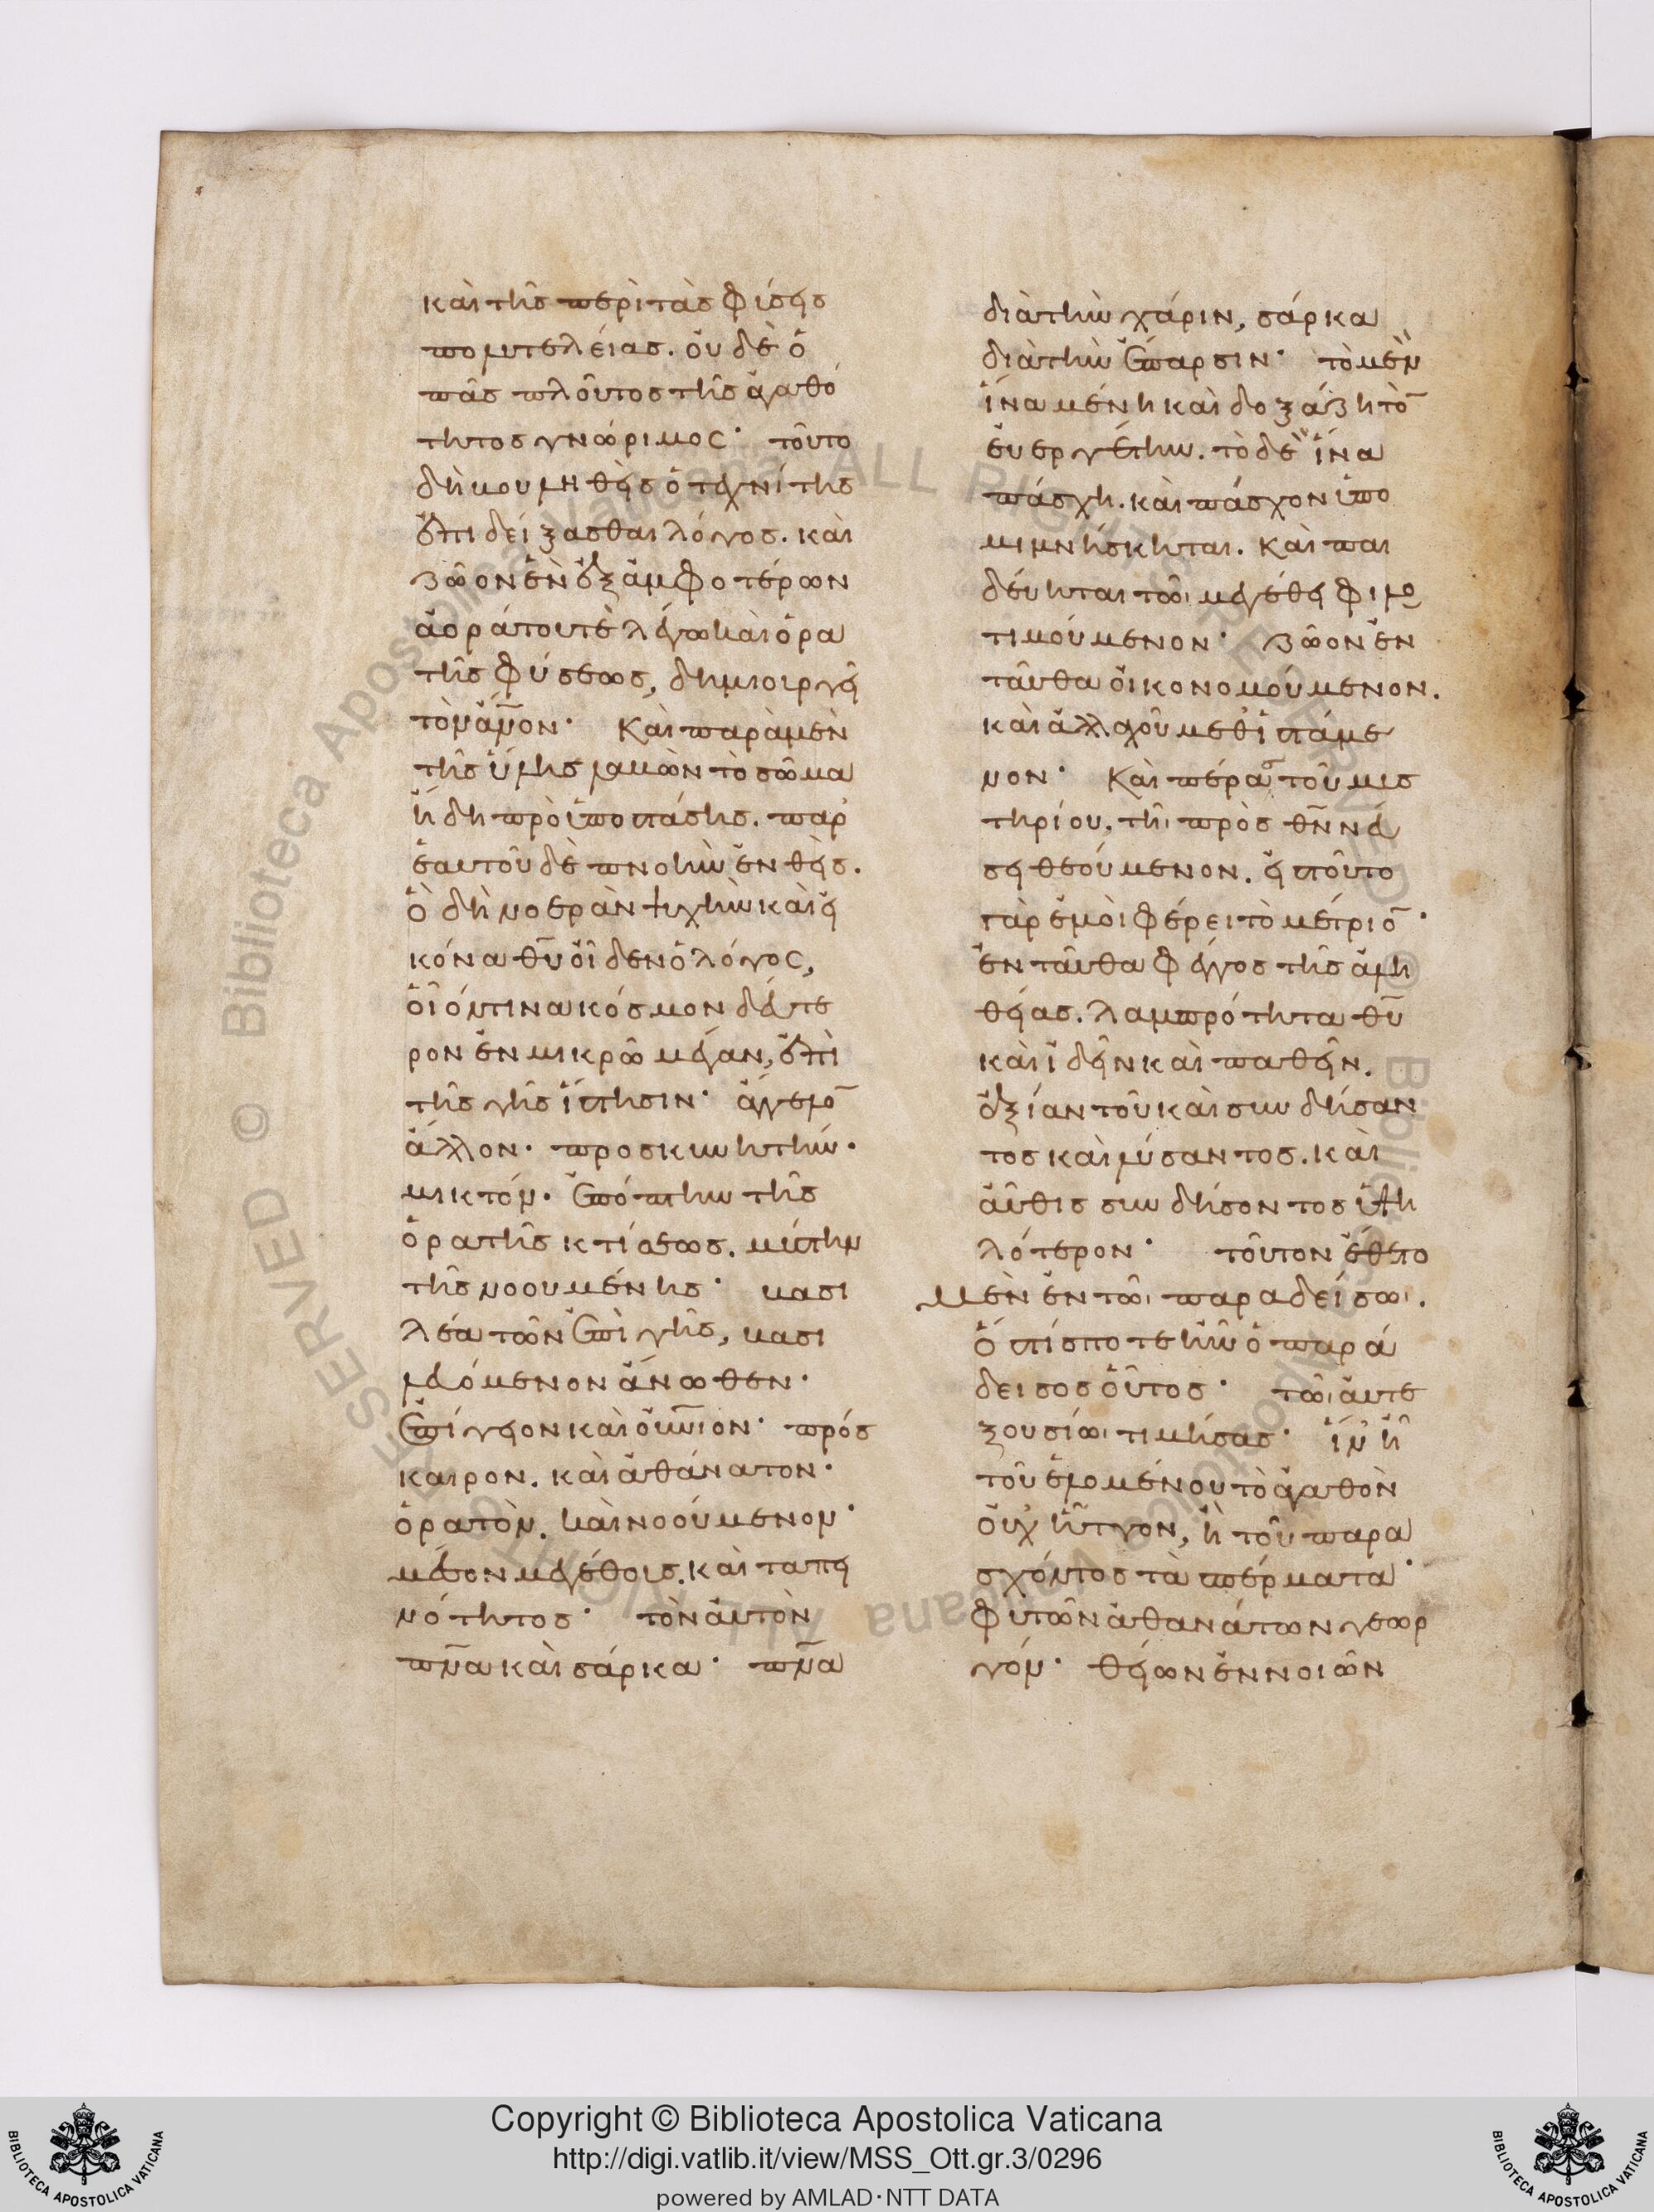 καὶ τῆς περὶ τὰς φύσεις
πολυτελείας. οὐδὲ ὁ
πᾶς πλοῦτος τῆς ἀγαθό
τητος γνώριμος· τοῦτο
δὴ βουληθεὶς ὁ τεχνίτης
ἐπιδείξασθαι λόγος. καὶ
ζῶον ἓν ἐξ ἀμφοτέρων
ἀοράτου τὲ λέγω καὶ ὁρα
τῆς φύσεως, δημιουργεῖ
τὸν ἄνον· Καὶ παρὰ μὲν
τῆς ὕλης λαβὼν τὸ σῶμα
ἤδη πρὸ ὑποστάσης. παρ'
ἑαυτοῦ δὲ πνοὴν ἐνθεὶς.
ὃ δὴ νοερὰν ψυχὴν καὶ εἰ
κόνα θυ οἶδεν ὁ λόγος,
οἷόν τινα κόσμον δεύτε
ρον ἐν μικρῶ μέγαν, ἐπὶ
τῆς γῆς ἵστησιν· ἄγγελο
ἄλλον· προσκυνητὴν·
μικτόν. ἐπόπτην τῆς
ὁρατῆς κτίσεως. μύστην
τῆς νοουμένης· βασι
λέα τῶν ἐπὶ γῆς, βασι
λευόμενον ἄνωθεν·
ἐπίγειον καὶ οὐνιον· πρόσ
καιρον. καὶ ἀθάνατον·
ὁρατὸν. καὶ νοούμενον·
μέσον μεγέθους. καὶ ταπει
νότητος· τὸν αὐτὸν
πνα καὶ σάρκα· πνα
διὰ τὴν χάριν, σάρκα
διὰ τὴν ἔπαρσιν· τὸ μὲν
ἵνα μένη καὶ δοξάζη τὸ
εὐεργέτην. τὸ δὲ ἵνα
πάσχη. καὶ πάσχον ὑπο
μιμνήσκηται. καὶ παι
δεύηται τῶι μεγέθει φιλο
τιμούμενον· ζῶον ἐν
ταῦθα οἰκονομούμενον.
καὶ ἀλλαχοῦ μεθιστάμε
νον· Καὶ πέρας τοῦ μυσ
τηρίου. τῆι πρὸς θν νεύ
σει θεούμενον. εἰς τοῦτο
γὰρ ἐμοὶ φέρει τὸ μέτριο·
ἐνταῦθα φέγγος τῆς ἀλη
θείας. λαμπρότητα θυ
καὶ ἰδεῖν καὶ παθεῖν.
ἀξίαν τοῦ καὶ συνδήσαν
τος καὶ λύσαντος. καὶ
αὖθις συνδήσοντος ὑψη
λότερον· τοῦτον ἔθετο
μὲν ἐν τῶι παραδείσωι.
ὅστίς ποτε ἦν ὁ παρά
δεισος οὗτος· τῶι αὐτε
ξουσίωι τιμήσας· ἵν' ἦ
τοῦ ἑλομένου τὸ ἀγαθὸν
οὐχ ἧττον, ἢ τοῦ παρα
σχόντος τὰ σπέρματα·
φυτῶν ἀθανάτων γεωρ
γόν· θείων ἐννοιῶν
Copyright © Biblioteca Apostolica Vaticana
http://digi.vatlib.it/view/MSS_Ott.gr.3/0296
powered by AMLAD·NTT DATA
BIBLIOTECA APOSTOLICA VATICANA
BIBLIOTECA APOSTOLICA VATICANA